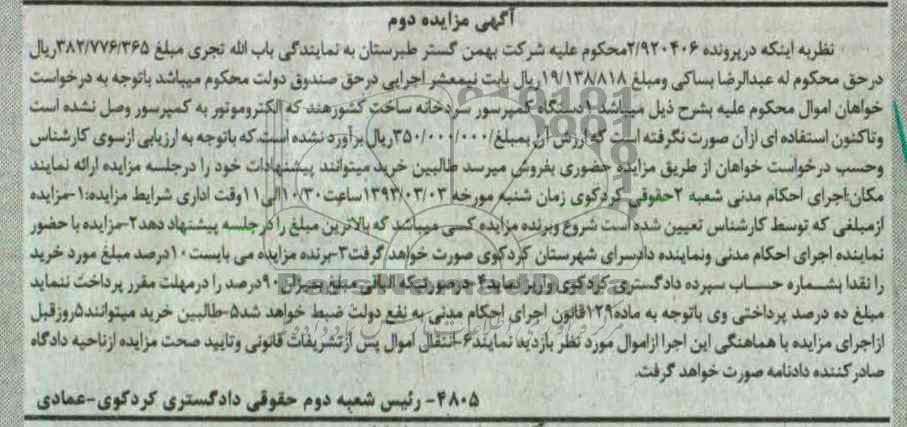 آگهی مزایده دوم
نظربه اینکه درپرونده ۲/۹۲۰۴۰۶محکوم علیه شرکت بهمن گستر طبرستان به نمایندگی باب الله تجری مبلغ ۳۸۲/۷۷۶/۳۶۵ریال
درحق محکوم له عبدالرضا بساکی ومبلغ ۱۹/۱۳۸/۸۱۸ریال بابت نیمعشر اجرایی درحق صندوق دولت محکوم میباشد باتوجه به درخواست
خواهان اموال محکوم علیه بشرح ذیل میباشد ۱دستگاه کمپرسور سردخانه ساخت کشورهند که الکتروموتور به کمپرسور وصل نشده است
وتاکنون استفاده ای ازآن صورت نگرفته است که ارزش آن بمبلغ/۳۵۰/۰۰۰/۰۰۰ریال برآورد نشده است.که باتوجه به ارزیابی ازسوی کارشناس
وحسب درخواست خواهان از طریق مزایده حضوری بفروش میرسد طالبین خرید میتوانند پیشنهادات خود را درجلسه مزایده ارائه نمایند
مکان:اجرای احکام مدنی شعبه ۲حقوقی کردکوی زمان شنبه مورخه ۱۳۹۳/۰۳/۰۳ساعت۱۰/۳۰الی۱۱وقت اداری شرایط مزایده:۱-مزایده
ازمبلغی که توسط کارشناس تعیین شده است شروع وبرنده مزایده کسی میباشد که بالاترین مبلغ را درجلسه پیشنهاد دهد۲-مزایده با حضور
نماینده اجرای احکام مدنی ونماینده دادسرای شهرستان کردکوی صورت خواهد گرفت۳-برنده مزایده می بایست ۱۰درصد مبلغ مورد خرید
را نقدا بشماره حساب سپرده دادگستری کردکوی واریز نماید۴-درصورتیکه الباقی مبلغ بمیزان۹۰درصد را درمهلت مقرر پرداخت ننماید
مبلغ ده درصد پرداختی وی باتوجه به ماده۱۲۹قانون اجرای احکام مدنی به نفع دولت ضبط خواهد شد۵-طالبین خرید میتوانند۵روزقبل
ازاجرای مزایده با هماهنگی این اجرا ازاموال مورد نظر بازدید نمایند۶-انتقال اموال پس ازتشریفات قانونی وتایید صحت مزایده ازناحیه دادگاه
صادرکننده دادنامه صورت خواهد گرفت.
۴۸۰۵- رئیس شعبه دوم حقوقی دادگستری کردکوی-عمادی